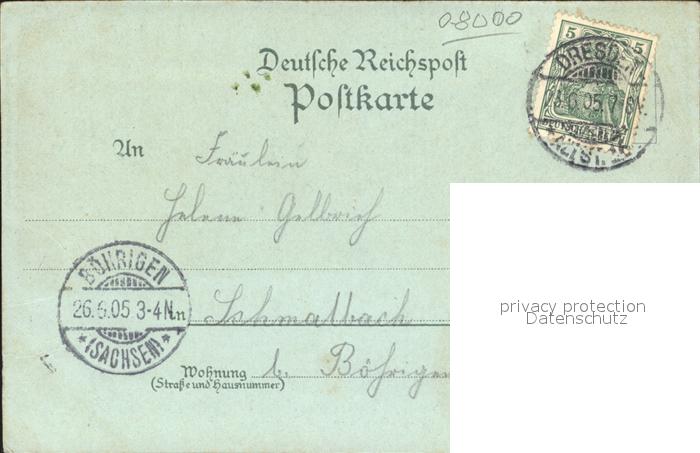 08000
Deutsche Reichspost
Postkarte
5 5
DRESDEN
.6.05.7
ALTST.
An Fräulein
Helene Gelbrich
BÖHRIGEN
26.6.05 3-4N.
*(SACHSEN)*
in Schmalbach
b. Böhrigen
Wohnung
(Straße und Hausnummer)
privacy protection
Datenschutz